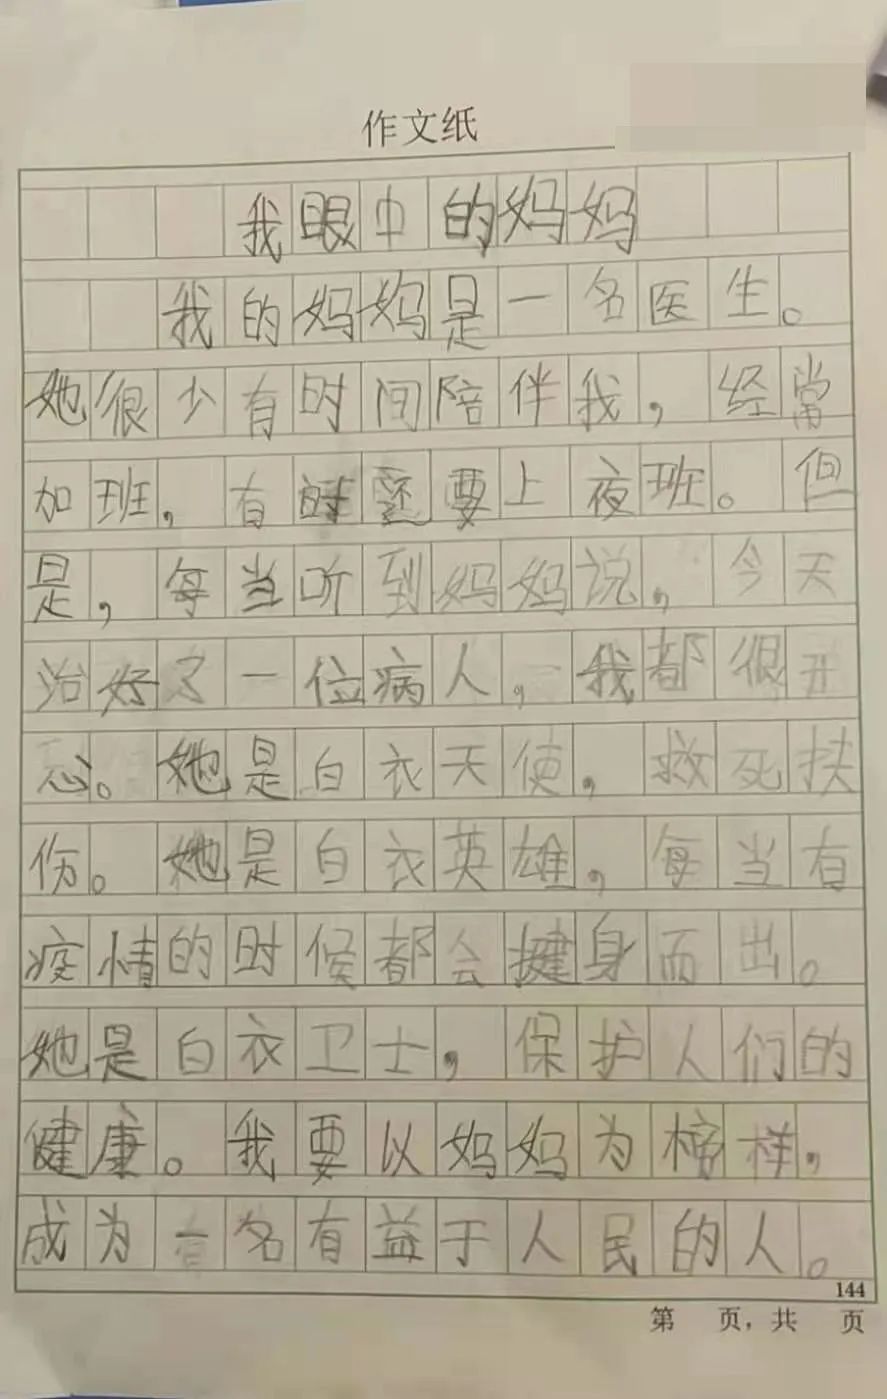 作文纸
我眼中的妈妈
我的妈妈是一名医生。
她很少有时间陪伴我，经常
加班，有时还要上夜班。但
是，每当听到妈妈说，今天
治好了一位病人，我都很开
心。她是白衣天使，救死扶
伤。她是白衣英雄，每当有
疫情的时候都会揵身而出。
她是白衣卫士，保护人们的
健康。我要以妈妈为榜样，
成为一名有益于人民的人。
144
第 页，共 页